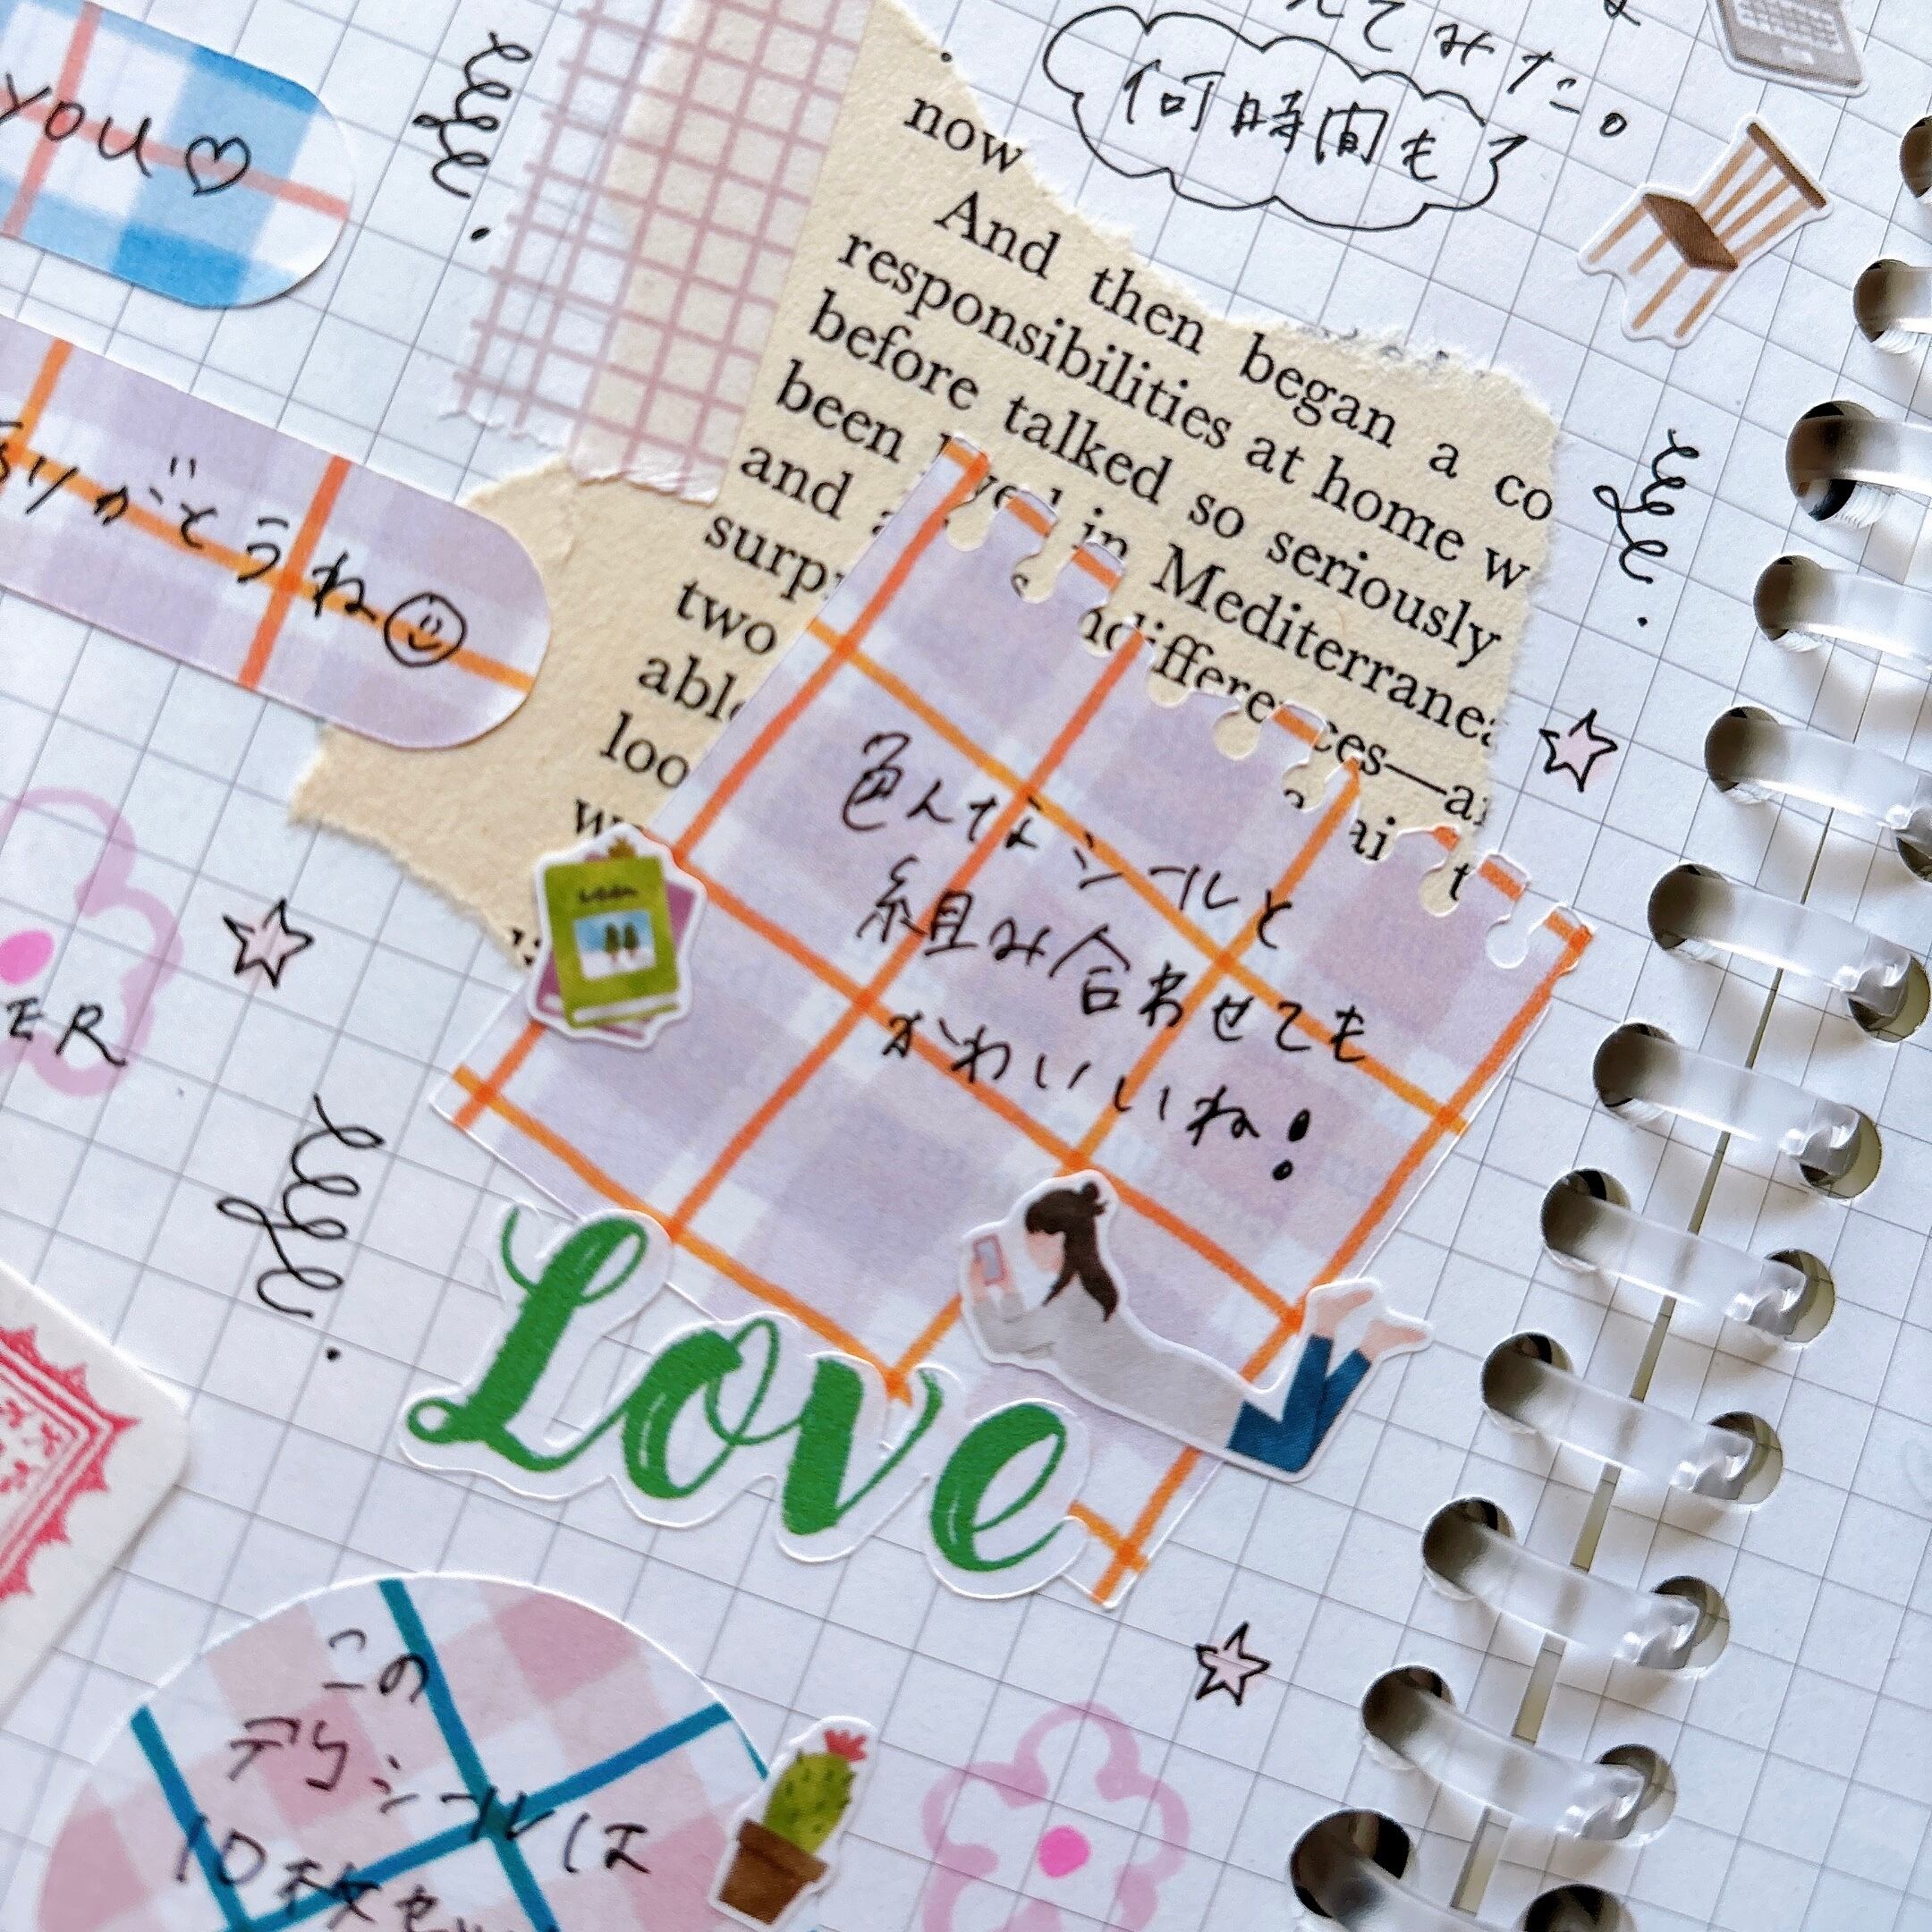 てみた。
何時間も
you♡
now
And then began a co
responsibilities at home w
before talked so seriously
been in Mediterranea
and differences—a
two
loo
りがとうね
色んなシールと
組み合わせても
かわいいね!
ER
Love
この
デザシールは
10枚セ